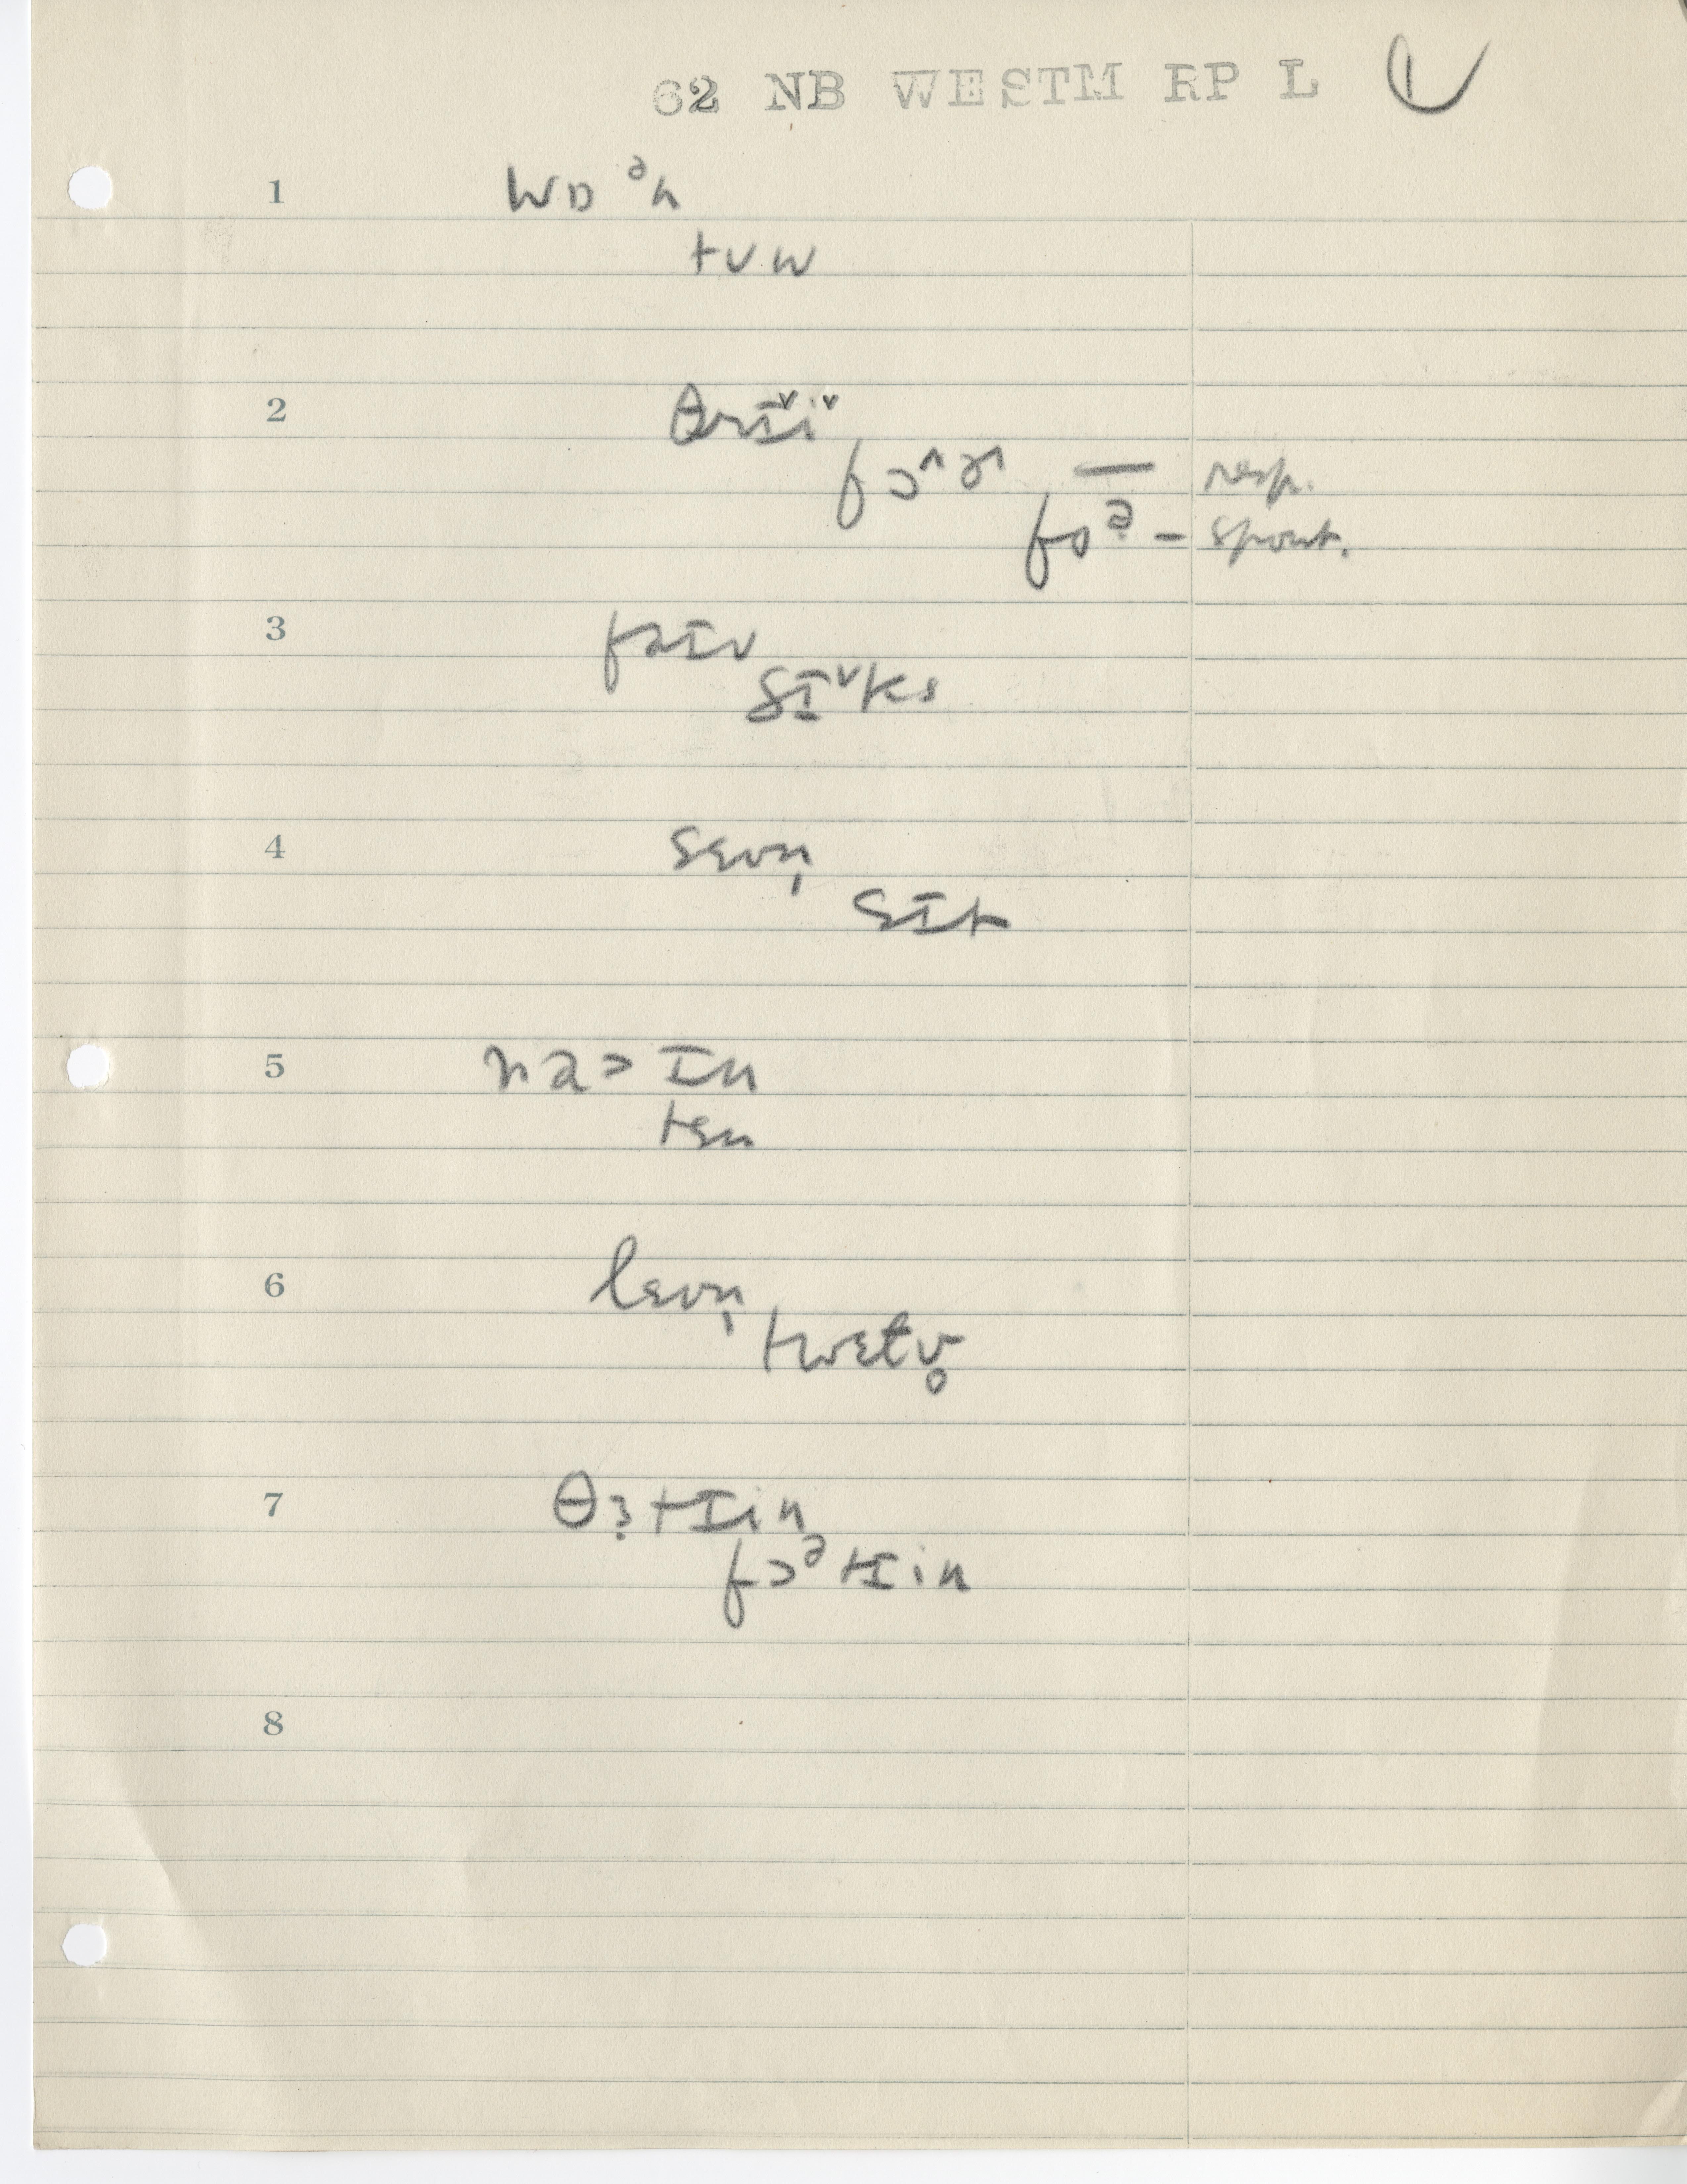 62 NB WESTM RP L
1 wɒᵊn
tʊw
2 θrɪ˅i˅
fɔ˄ɚ˄ — resp.
fo ə̣ - spont.
3 faɪv
sɪ˅ks
4 sɛvn̩
sɪt
5 naɪn
tɛn
6 lɛvn̩
twɛt̬v̥
7 θɜ̣tɪin
fɔᵊtɪin
8